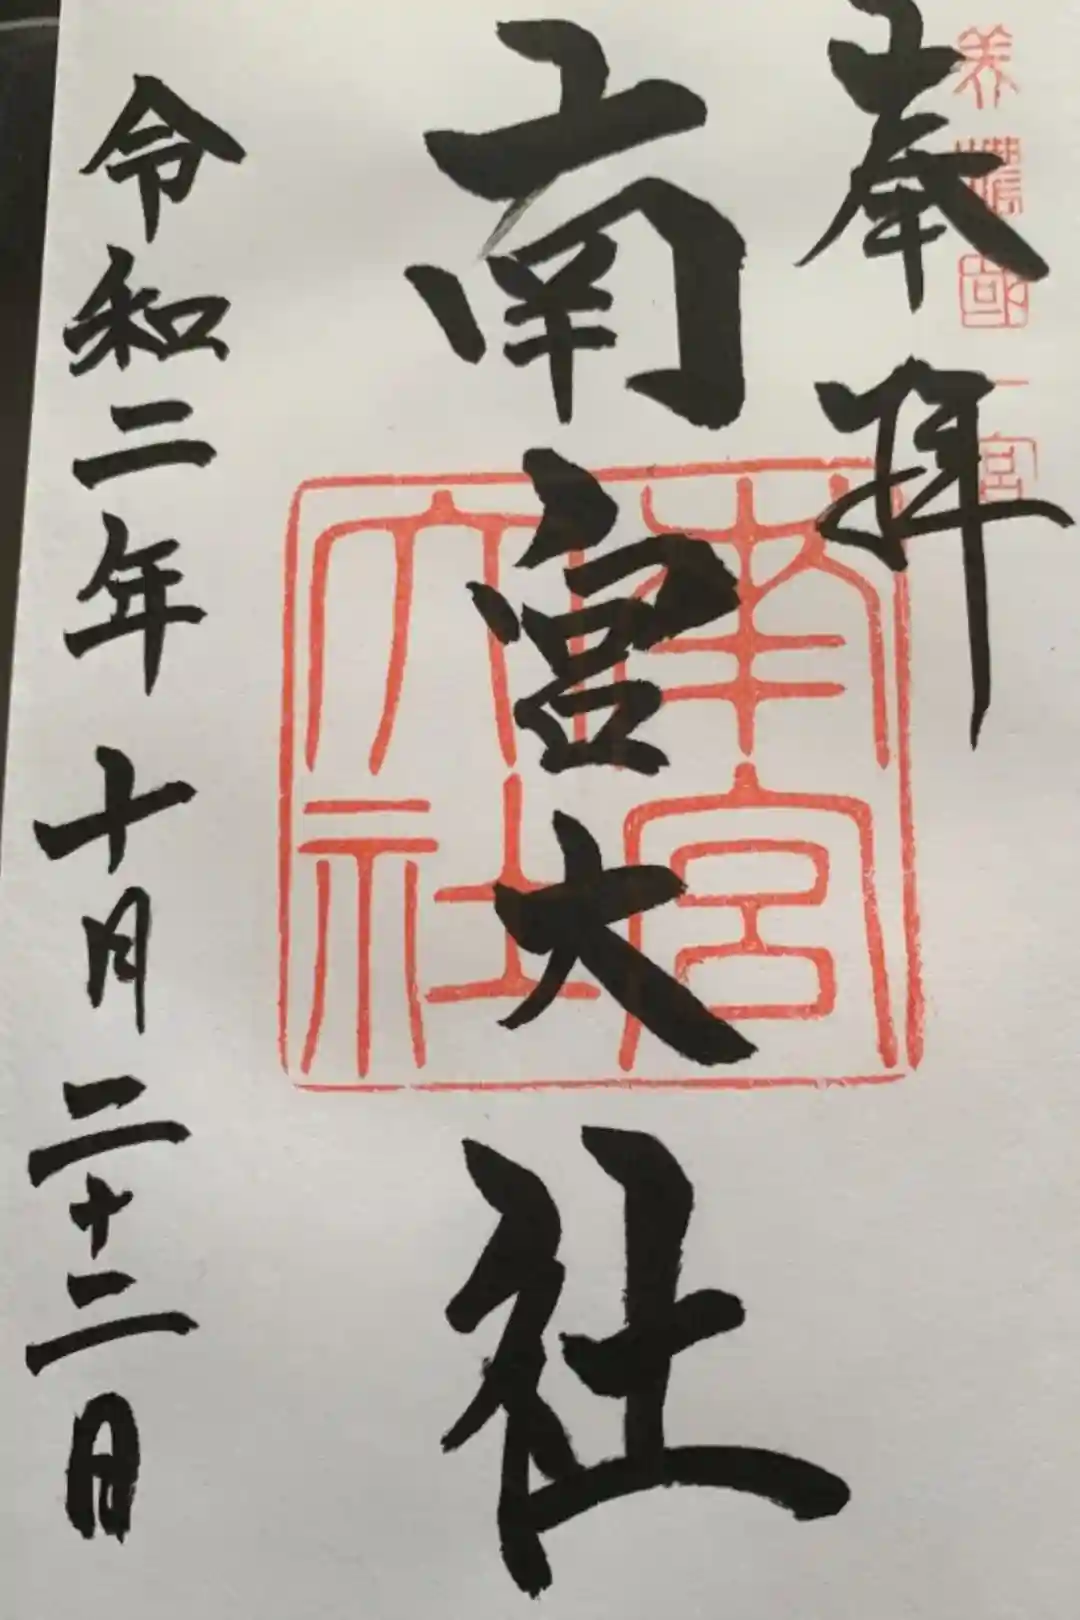 美濃國一宮
奉拝
南宮大社
南宮大社
令和二年十月二十二日